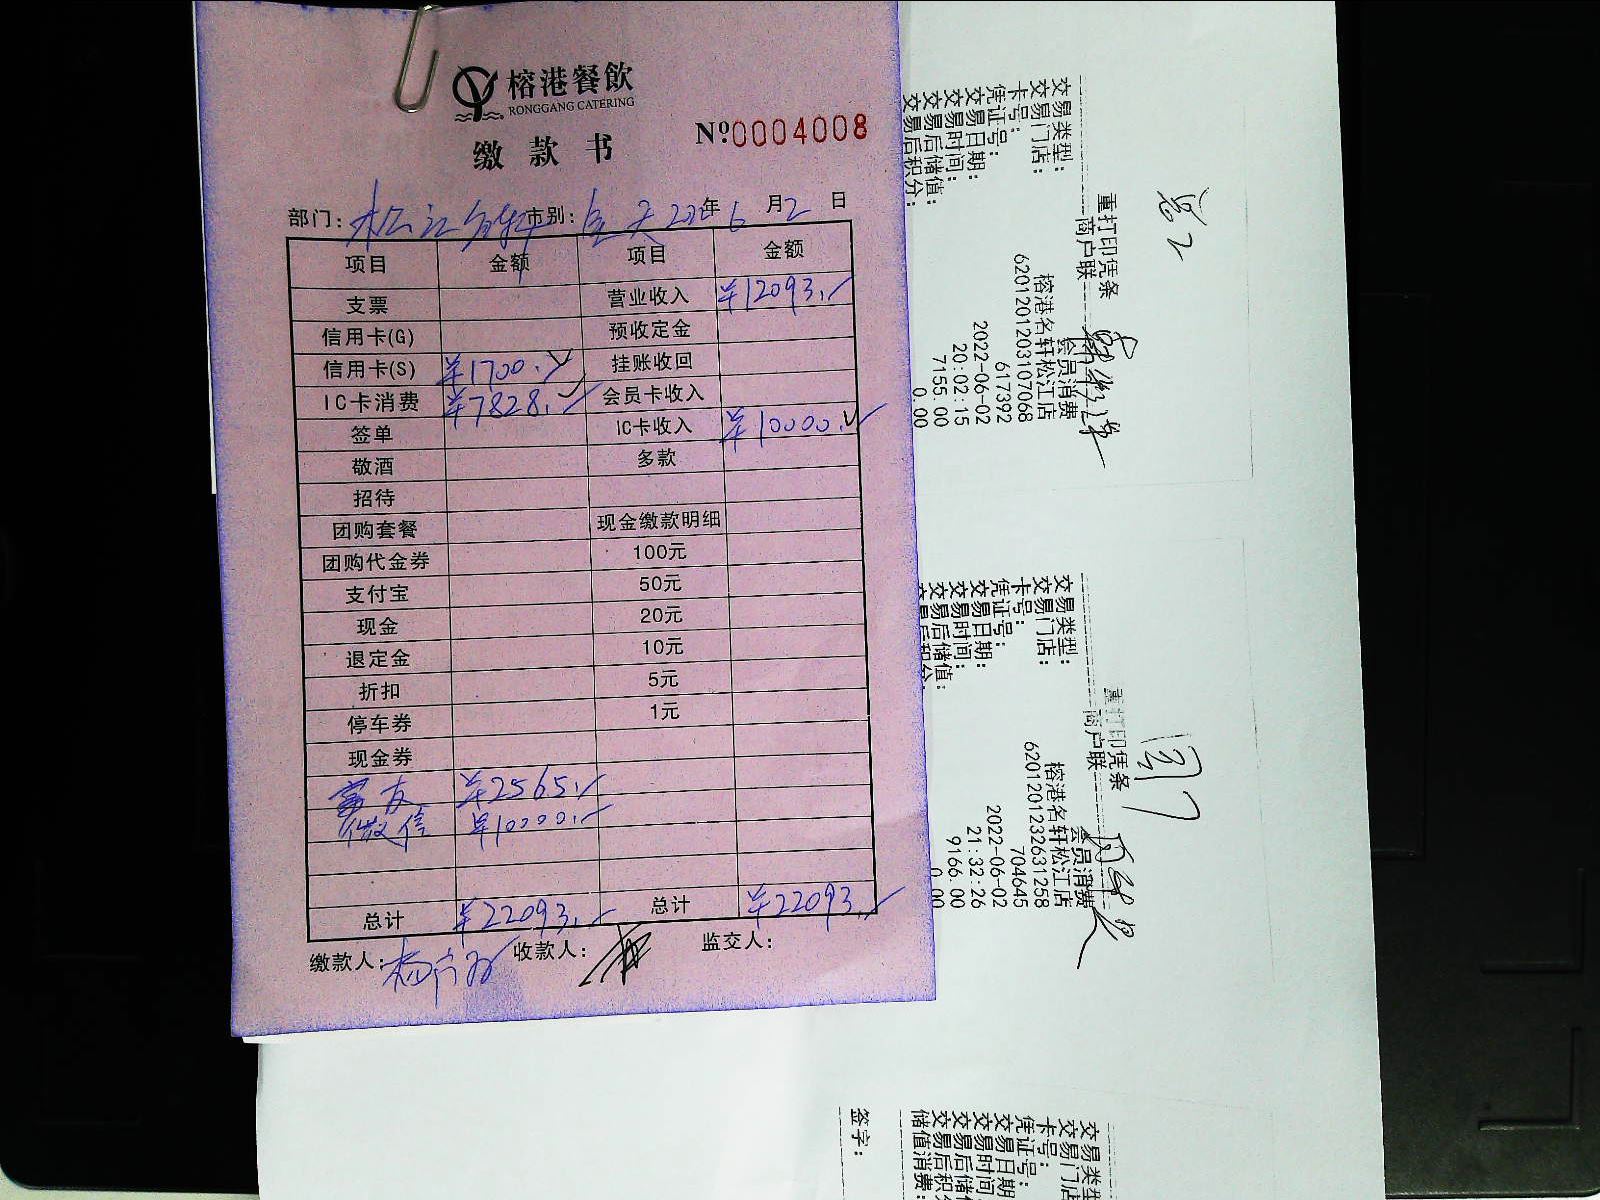 榕港餐飲
RONGGANG CATERING
缴款书
Nº0004008
部门: 松江名轩 市别: 全天 2022年 6月2日
项目 金额 项目 金额
支票 营业收入 ¥12093.-
信用卡(G) 预收定金
信用卡(S) ¥1700.- 挂账收回
IC卡消费 ¥7828.- 会员卡收入
签单 IC卡收入 ¥10000.-
敬酒 多款
招待
团购套餐 现金缴款明细
团购代金券 100元
支付宝 50元
现金 20元
退定金 10元
折扣 5元
停车券 1元
现金券
富友 ¥2565.-
微信 ¥10000.-
总计 ¥22093.- 总计 ¥22093.-
缴款人: 收款人: 监交人:
重打印凭条
商户联
交易类型: 会员消费
交易门店: 榕港名轩松江店
卡号: 6201201203107068
凭证号: 617392
交易日期: 2022-06-02
交易时间: 20:02:15
交易后储值: 7155.00
交易后积分: 0.00
重打印凭条
商户联
交易类型: 会员消费
交易门店: 榕港名轩松江店
卡号: 6201201232631258
凭证号: 704645
交易日期: 2022-06-02
交易时间: 21:32:26
交易后储值: 9166.00
交易后积分: 0.00
交易类型
交易门店
卡号:
凭证号:
交易日期
交易时间
交易后储
交易后积
储值消费:
签字: